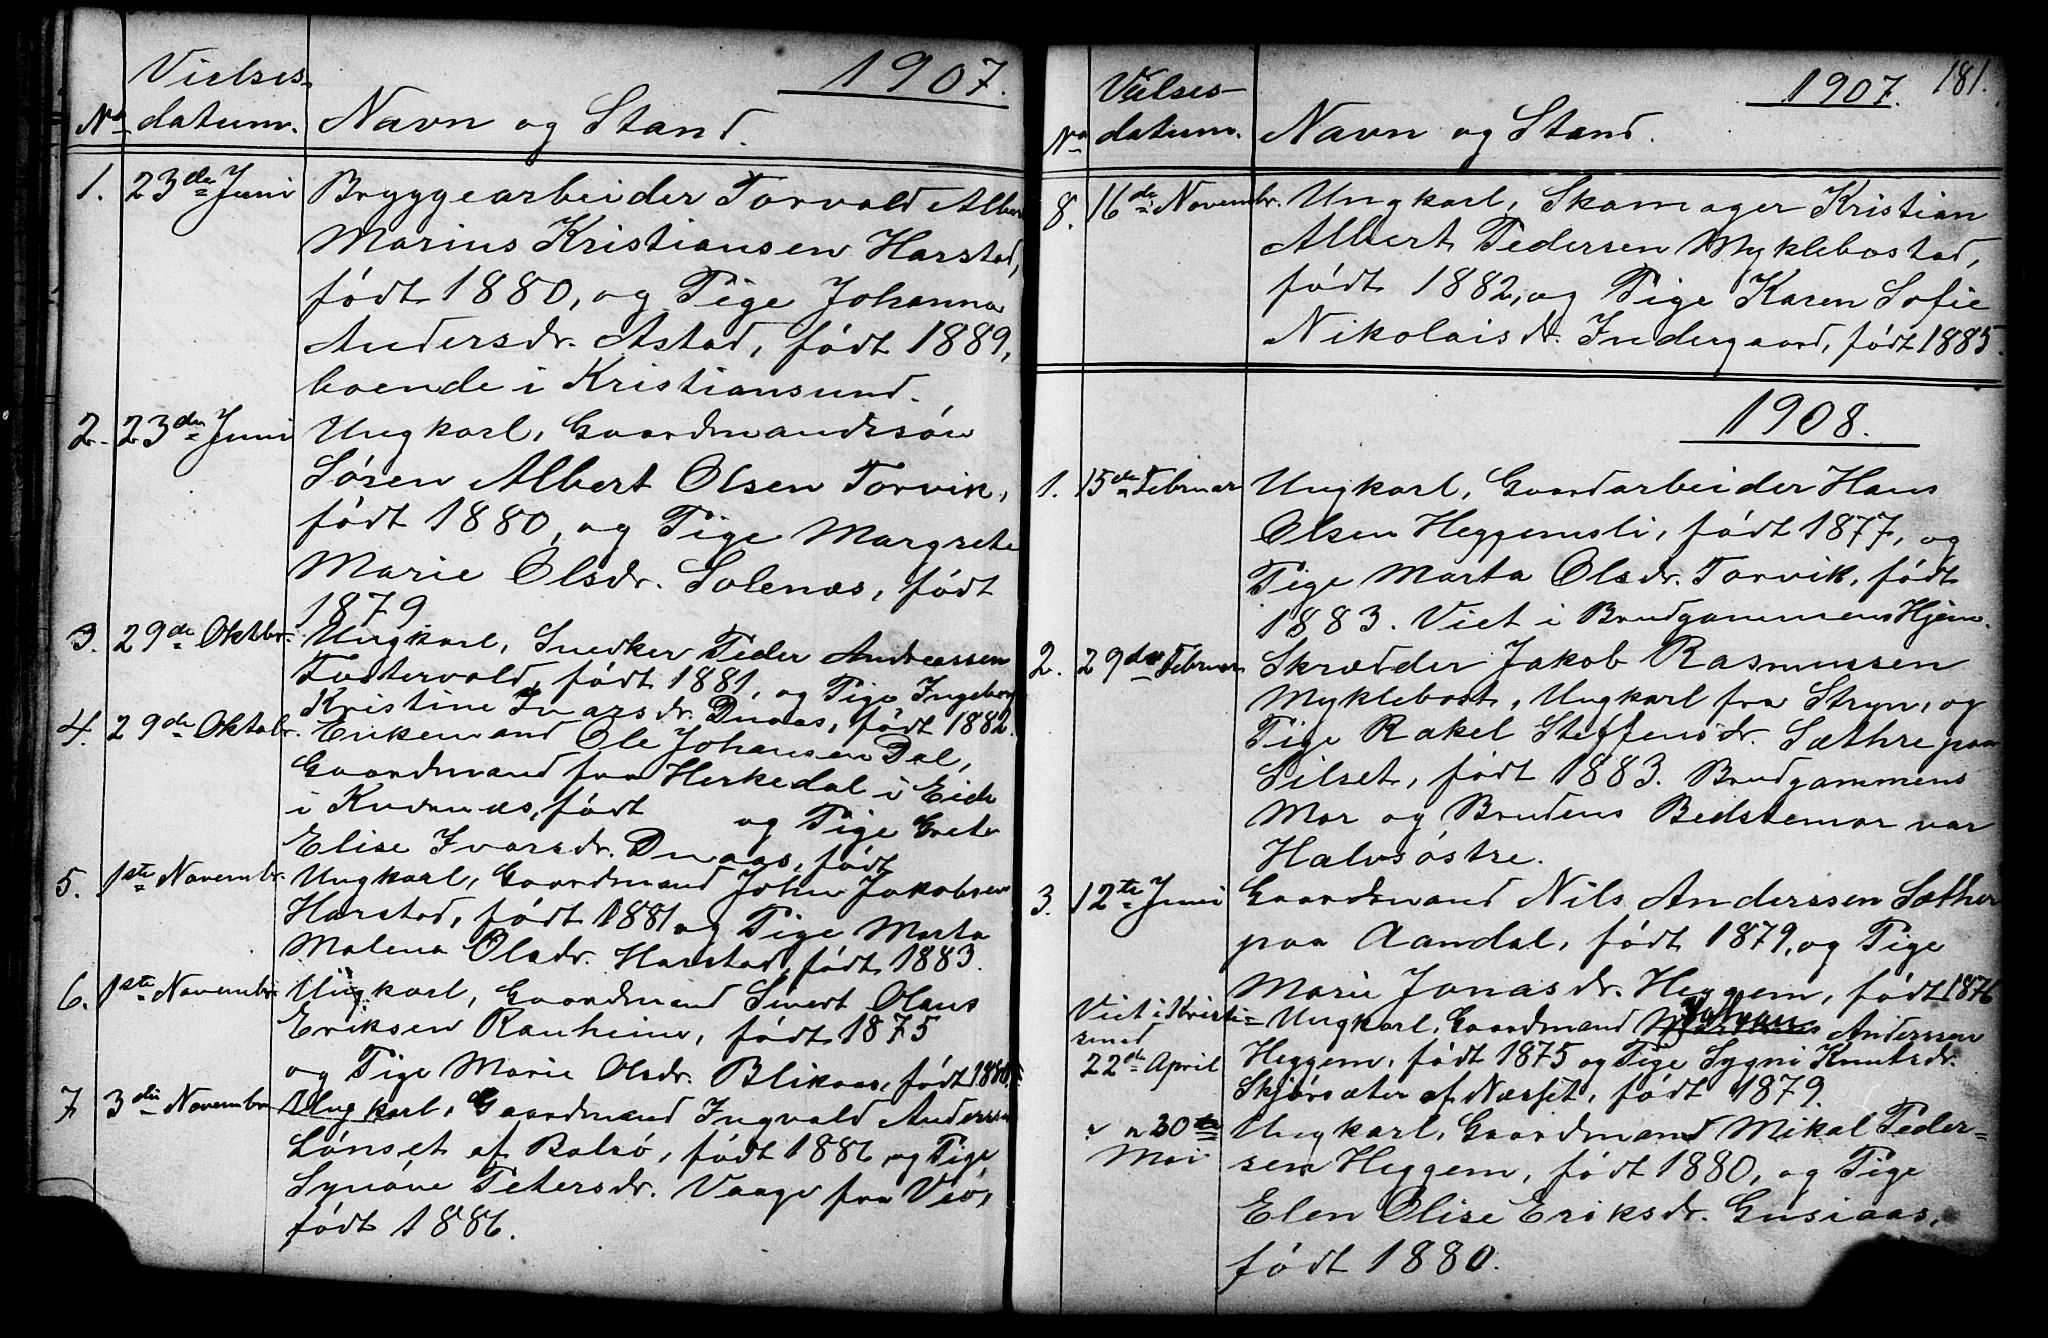 1907.
Vielses-
No datum. Navn og Stand.
1. 23de Juni Bryggearbeider Torvald Albert
Marius Kristiansen Harstad,
født 1880, og Pige Johanna
Andersdr. Astad, født 1889,
boende i Kristiansund.
2. 23de Juni Ungkarl, Gaardmandssøn
Søren Albert Olsen Torvik,
født 1880, og Pige Margrete
Marie Olsdr. Solenæs, født
1879
3. 29de Oktbr. Ungkarl, Snedker Peder Andreassen
Tustervold, født 1881, og Pige Ingeborg
Kristine Ivarsdr. Duaas, født 1882.
4. 29de Oktobr. Enkemand Ole Johansen Dal,
Gaardmand fra Herkedal i Eide
i Kvernæs, født og Pige Grete
Elise Ivarsdr. Duaas, født
5. 1ste Novembr. Ungkarl, Gaardmand John Jakobsen
Harstad, født 1881 og Pige Marta
Malena Olsdr. Harstad, født 1883.
6. 1ste Novembr. Ungkarl, Gaardmand Sivert Olaus
Eriksen Ranheim, født 1875
og Pige Marie Olsdr. Blikaas, født 1880.
7 3die Novembr. Ungkarl, Gaardmand Ingvald Anderssen
Lønset af Bolsø, født 1886 og Pige
Synøve Petersdr. Vaage fra Veø,
født 1886.
181.
1907.
Vielses-
No datum. Navn og Stand.
8. 16de Novembr. Ungkarl, Skomager Kristian
Albert Pedersen Myklebostad,
født 1882, og Pige Karen Sofie
Nikolaisdr. Indergaard, født 1885.
1908.
1. 15de Februar Ungkarl, Gaardarbeider Hans
Olsen Heggemsli, født 1877, og
Pige Marta Olsdr. Torvik, født
1883. Viet i Brudgommens Hjem.
2. 29de Februar Skrædder Jakob Rasmussen
Myklebost, Ungkarl fra Stryn, og
Pige Rakel Steffensdr. Sæthre paa
Silset, født 1883. Brudgammens
Mor og Brudens Bedstemor var
Halvsøstre.
3. 12te Juni Gaardmand Nils Anderssen Sæther
paa Aandal, født 1879, og Pige
Marie Jonasdr. Heggem, født 1876
Viet i Kristi- Ungkarl, Gaardmand Johan Anderssen
sund
22de April Heggem, født 1875 og Pige Sygni Knutsdr.
Skjørsæter af Næsset, født 1879.
" " 30te Ungkarl, Gaardmand Mikal Peder-
Mai sen Heggem, født 1880, og Pige
Elen Olise Eriksdr. Gusiaas,
født 1880.